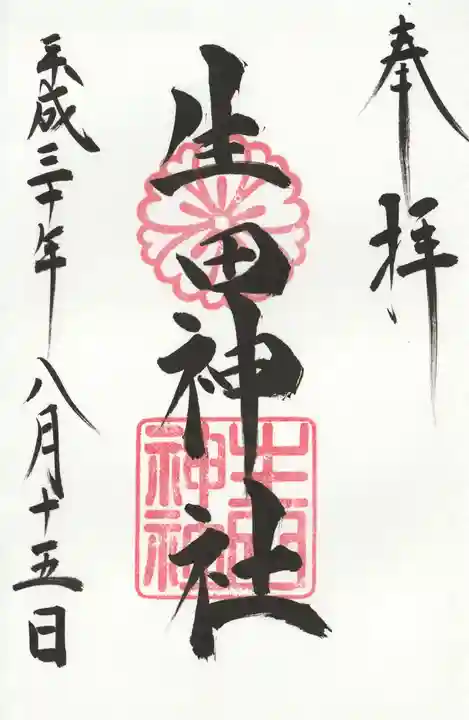 奉拝
生田神社
平成三十年八月十五日